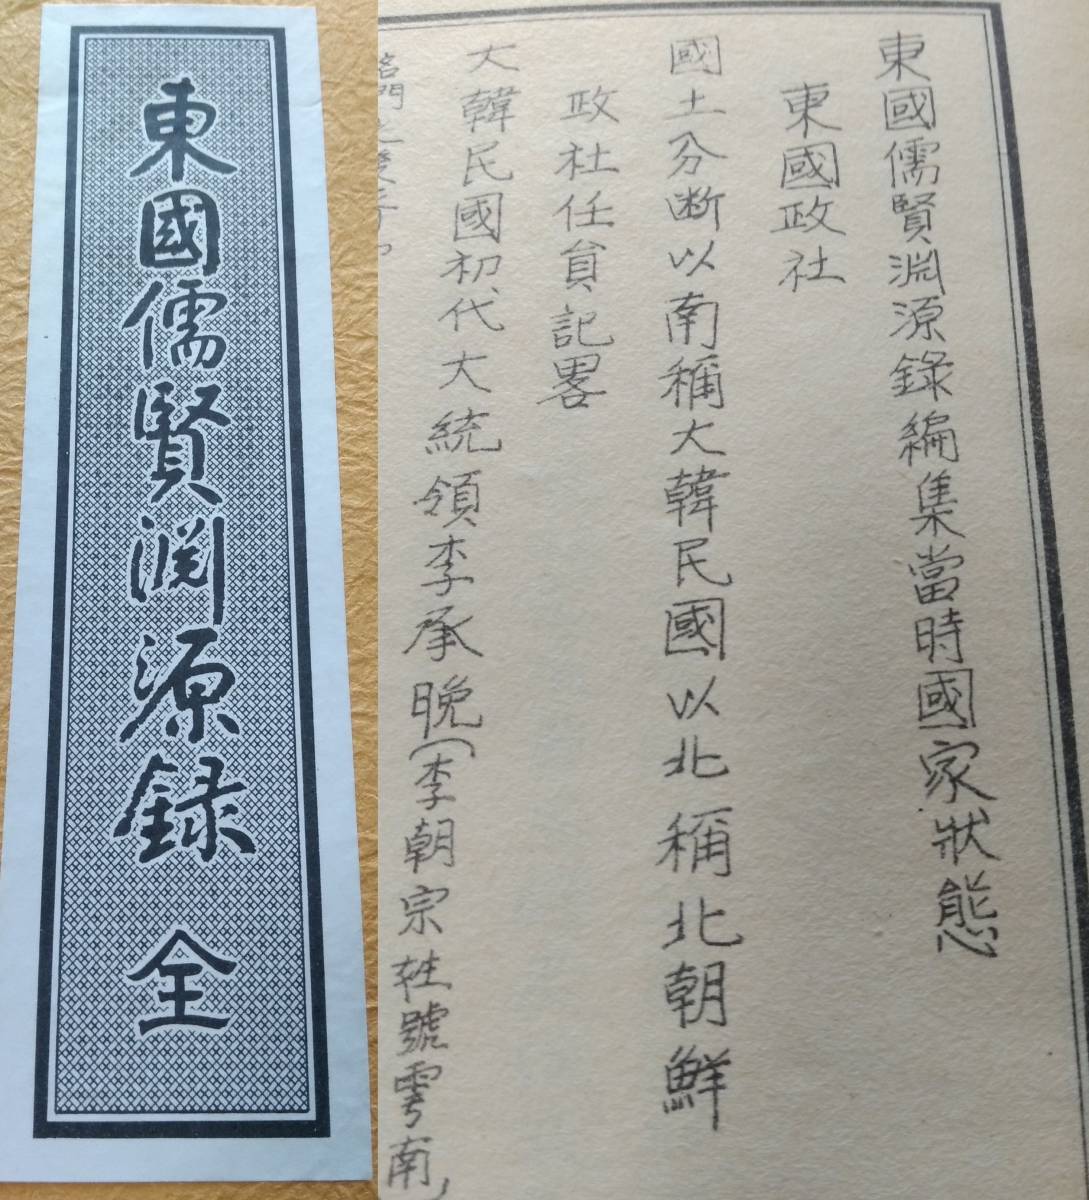 東國儒賢淵源錄 全
東國儒賢淵源錄編集當時國家狀態
東國政社
國土分斷以南稱大韓民國以北稱北朝鮮
政社任員記畧
大韓民國初代大統領李承晩(李朝宗姓號雩南,